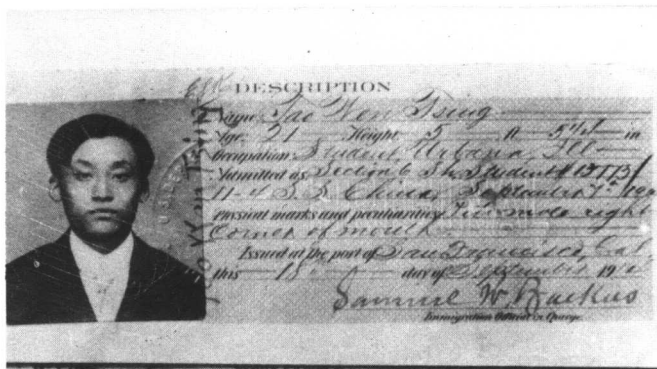 DESCRIPTION
Name, Tao Wen Tsing
Age, 21 Height, 5 ft in
Occupation, Student, Urbana, Ill
Admitted as Section 6 Student
S.S. China, September
Physical marks and peculiarities, mole right
Corner of mouth
Issued at the port of San Francisco, Cal,
this day of September 19
Samuel W. Backus
Immigration Officer in Charge.